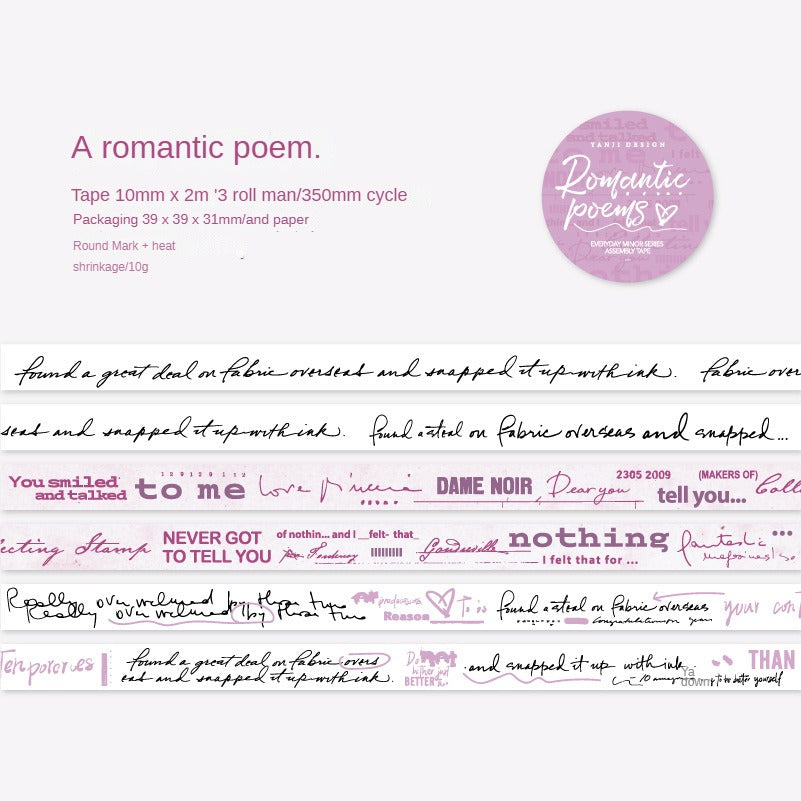 A romantic poem.
Tape 10mm x 2m '3 roll man/350mm cycle
Packaging 39 x 39 x 31mm/and paper
Round Mark + heat
shrinkage/10g
YANJI DESIGN
Romantic
poems
EVERYDAY MINOR SERIES
ASSEMBLY TAPE
found a great deal on fabric overseas and snapped it up with ink. fabric over
seas and snapped it up with ink. found a steal on fabric overseas and snapped...
You smiled
and talked
to me
Love
DAME NOIR
Dear you
2305 2009
(MAKERS OF)
tell you...
Colle
ecting Stamp
NEVER GOT
TO TELL YOU
of nothin... and I felt- that
nothing
I felt that for ...
fantastic
Really overwhelmed by
Really overwhelmed by
Reason
To
found a steal on fabric overseas
Congratulation
your con
found a great deal on fabric overs
eas and snapped it up with ink.
Do not
BETTER
and snapped it up with ink.
Ya
down
to be better yourself
THAN